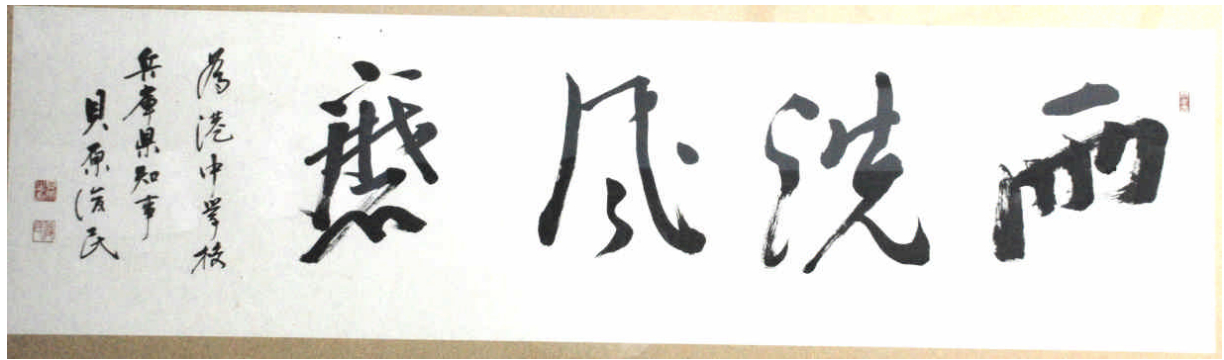 雨洗風
為港中學校
兵庫県知事
貝原俊民